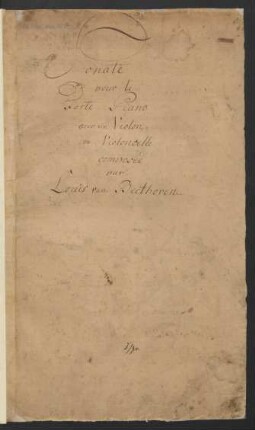 Sonate
pour le
Forte Piano
avec un Violon
ou Violoncelle
composée
par
Louis van Beethoven